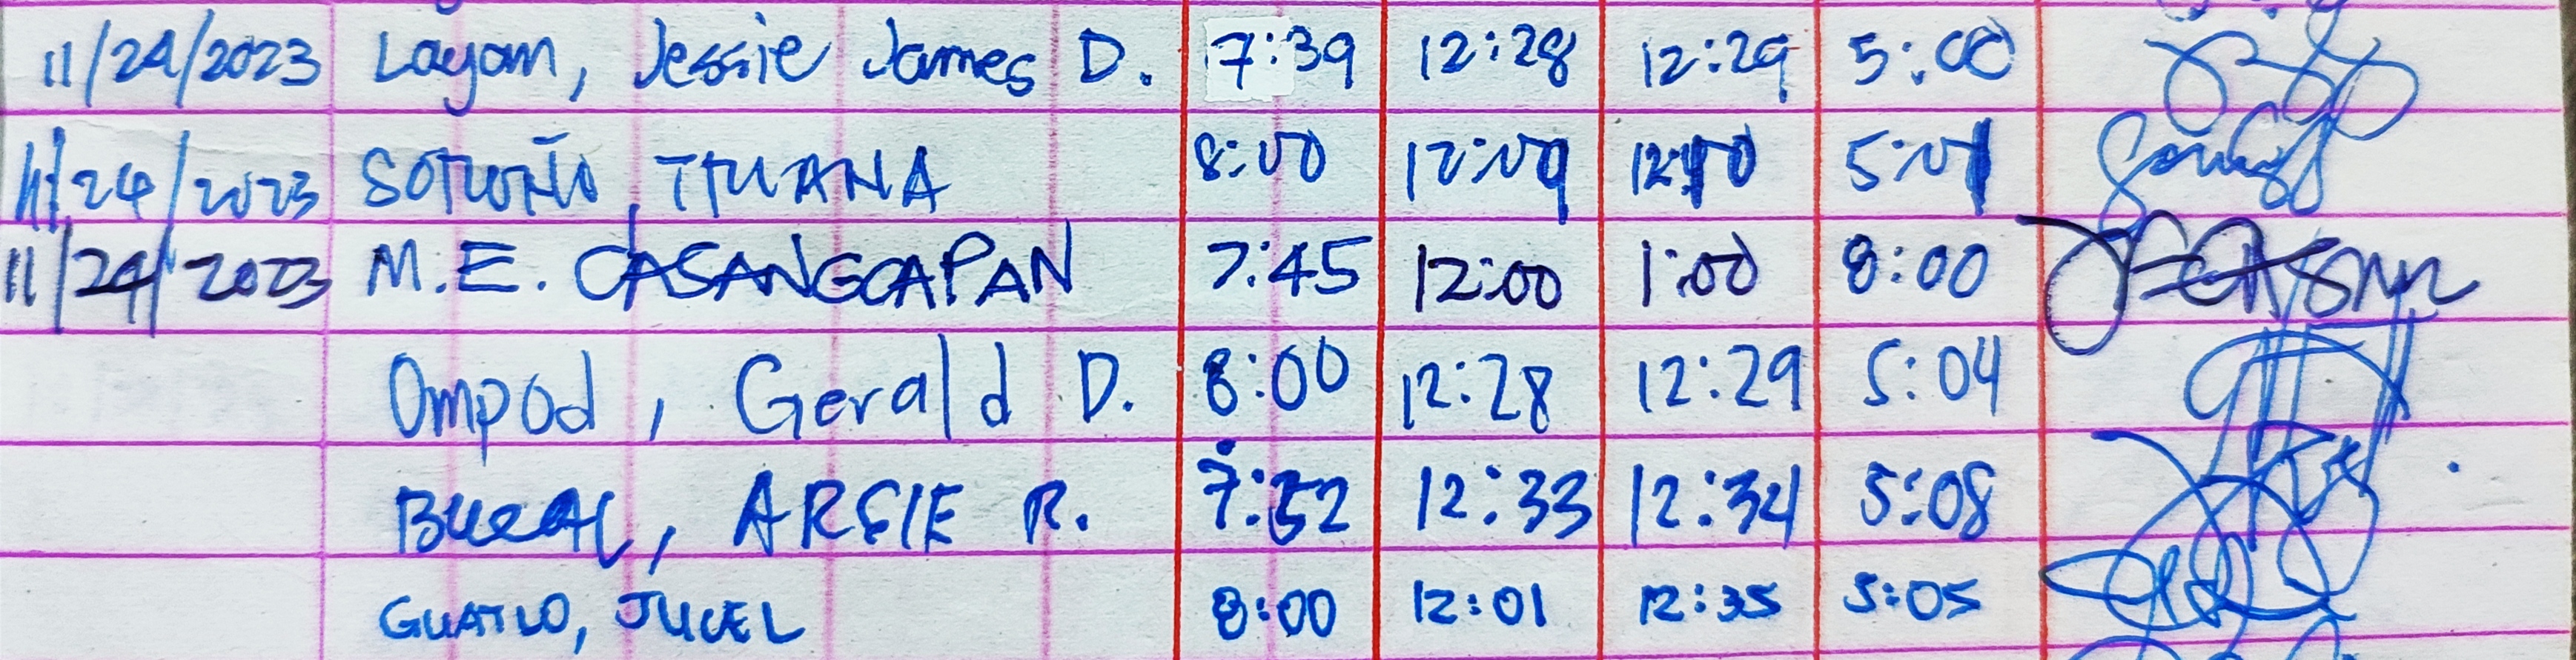 11/24/2023 Layam, Jessie James D. 7:39 12:28 12:29 5:00
11/24/2023 8:00 12:09 12:10 5:01
11/24/2023 M.E. CASANGCAPAN 7:45 12:00 1:00 8:00
Ompod, Gerald D. 8:00 12:28 12:29 5:04
ARSIE R. 7:52 12:33 12:34 5:08
JUCEL 8:00 12:01 12:35 5:05